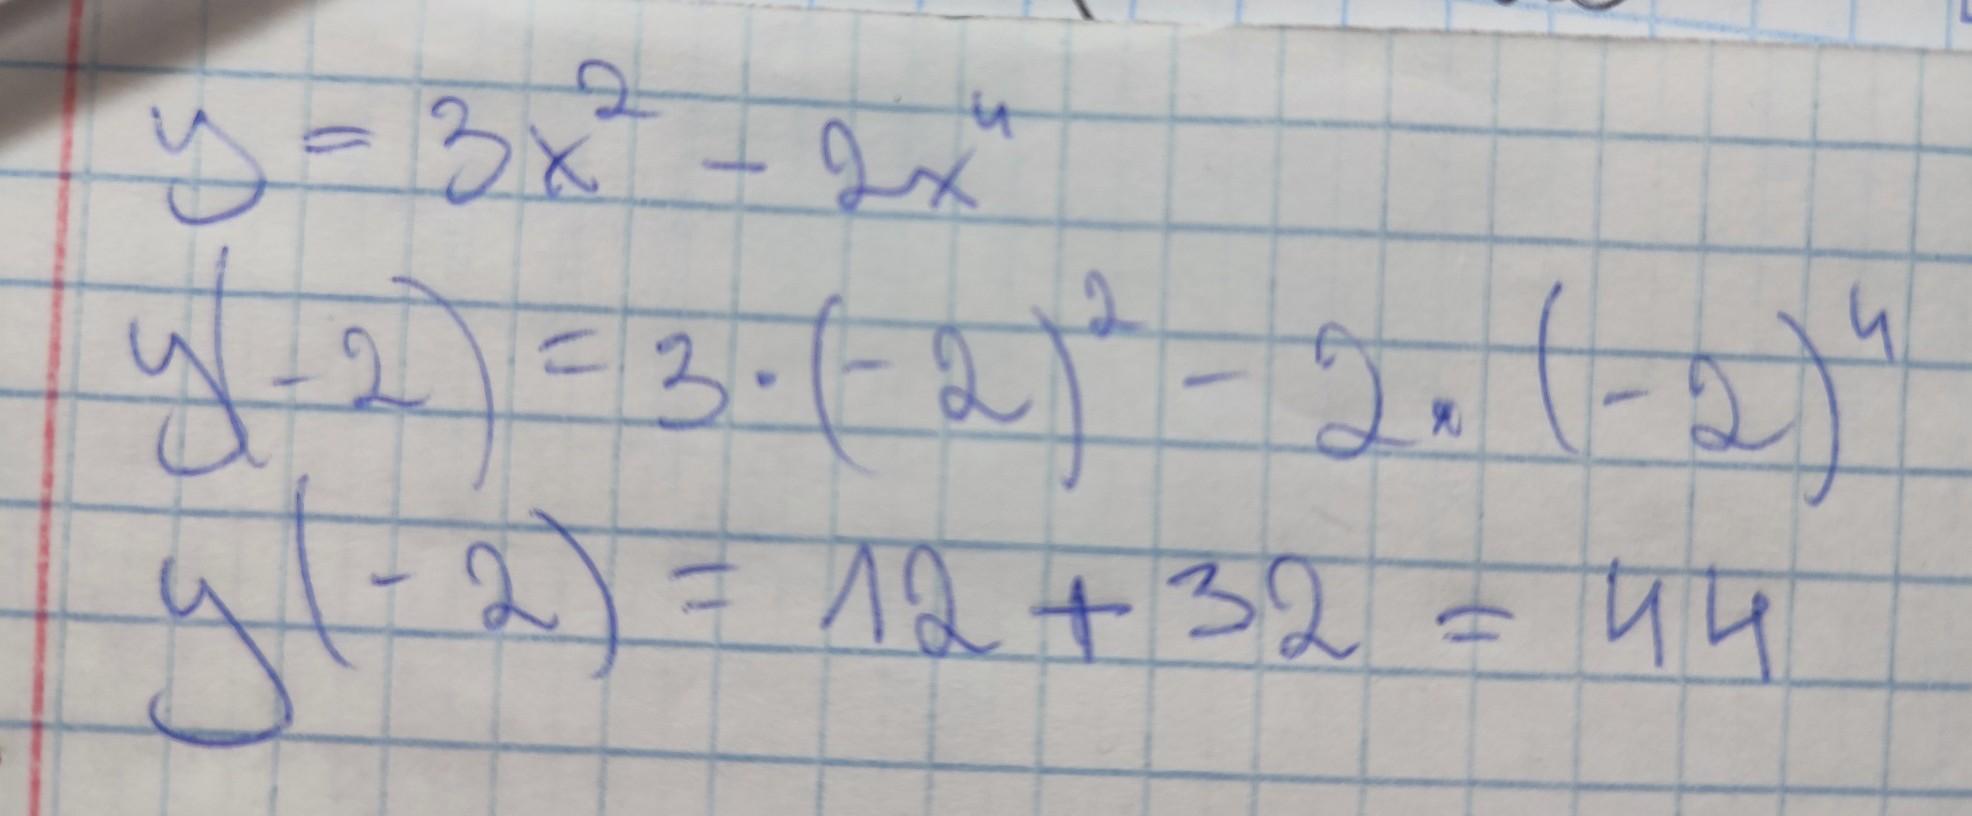 y = 3x² - 2x⁴
y(-2) = 3·(-2)² - 2·(-2)⁴
y(-2) = 12 + 32 = 44